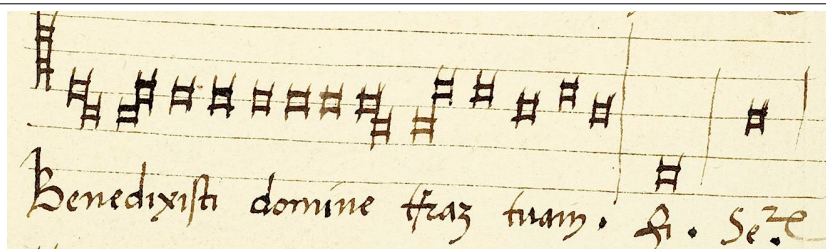 Benedixisti domine tr̃az tuam . fi . Se.re